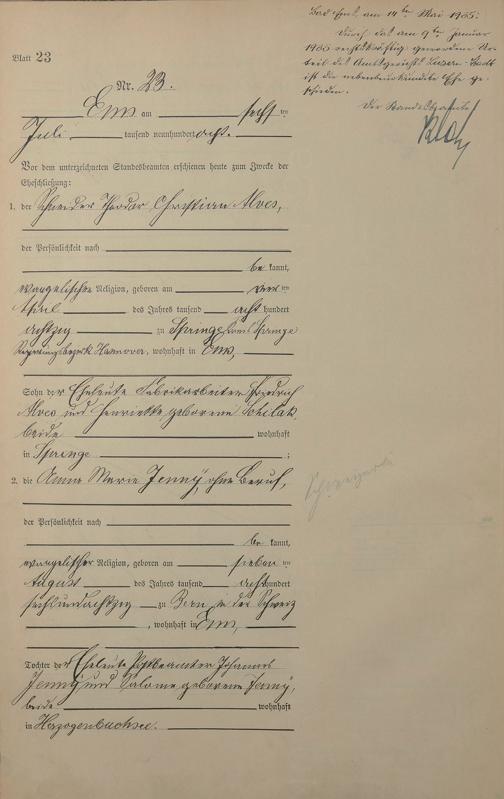 Blatt 23
Nr. 23.
Ems am sechsten
Juli tausend neunhundert acht.
Vor dem unterzeichneten Standesbeamten erschienen heute zum Zwecke der
Eheschließung:
1. der Schneider Theodor Christian Alves,
der Persönlichkeit nach
be kannt,
evangelischer Religion, geboren am vierten
April des Jahres tausend acht hundert
achtzig zu Springe, Kreis Springe
Regierungsbezirk Hannover, wohnhaft in Ems,
Sohn der Eheleute Fabrikarbeiter Friedrich
Alves und Henriette, geborene
beide wohnhaft
in Springe ;
2. die Anna Marie Jenny, ohne Beruf,
der Persönlichkeit nach
be kannt,
evangelischer Religion, geboren am sieben ten
August des Jahres tausend acht hundert
sechsundachtzig zu Bern, in der Schweiz
, wohnhaft in Ems,
Tochter der Eheleute Postbeamter Johannes
Jenny und Salome geborene Jenny,
beide wohnhaft
in Herzogenbuchsee.
Bad Ems, am 14ten Mai 1935.
Durch das am 9ten Januar
rechtskräftig gewordene Ur-
teil des Amtsgerichts Luzern-Stadt
ist die nebenbeurkundete Ehe ge-
schieden.
Der Standesbeamte